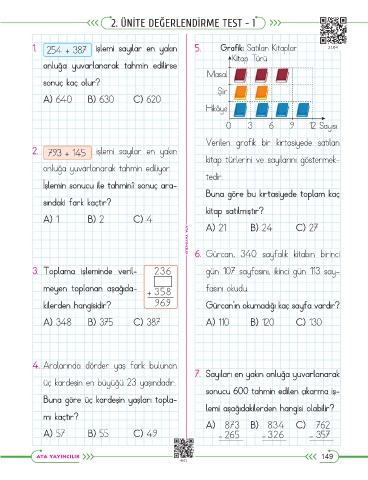 2. ÜNİTE DEĞERLENDİRME TEST - 1
1. 254 + 387 işlemi sayılar en yakın
onluğa yuvarlanarak tahmin edilirse
sonuç kaç olur?
A) 640 B) 630 C) 620
2. 793 + 145 işlemi sayılar en yakın
onluğa yuvarlanarak tahmin ediliyor.
İşlemin sonucu ile tahminî sonuç ara-
sındaki fark kaçtır?
A) 1 B) 2 C) 4
3. Toplama işleminde veril-
meyen toplanan aşağıda-
kilerden hangisidir?
236
+ 358
969
A) 348 B) 375 C) 387
4. Aralarında dörder yaş fark bulunan
üç kardeşin en büyüğü 23 yaşındadır.
Buna göre üç kardeşin yaşları topla-
mı kaçtır?
A) 57 B) 55 C) 49
5. Grafik: Satılan Kitaplar
Kitap Türü
Masal
Şiir
Hikâye
0 3 6 9 12 Sayısı
Verilen grafik bir kırtasiyede satılan
kitap türlerini ve sayılarını göstermek-
tedir.
Buna göre bu kırtasiyede toplam kaç
kitap satılmıştır?
A) 21 B) 24 C) 27
6. Gürcan, 340 sayfalık kitabın birinci
gün 107 sayfasını, ikinci gün 113 say-
fasını okudu.
Gürcan'ın okumadığı kaç sayfa vardır?
A) 110 B) 120 C) 130
7. Sayıları en yakın onluğa yuvarlanarak
sonucu 600 tahmin edilen çıkarma iş-
lemi aşağıdakilerden hangisi olabilir?
A) 873 B) 834 C) 762
- 265 - 326 - 357
ATA YAYINCILIK
149